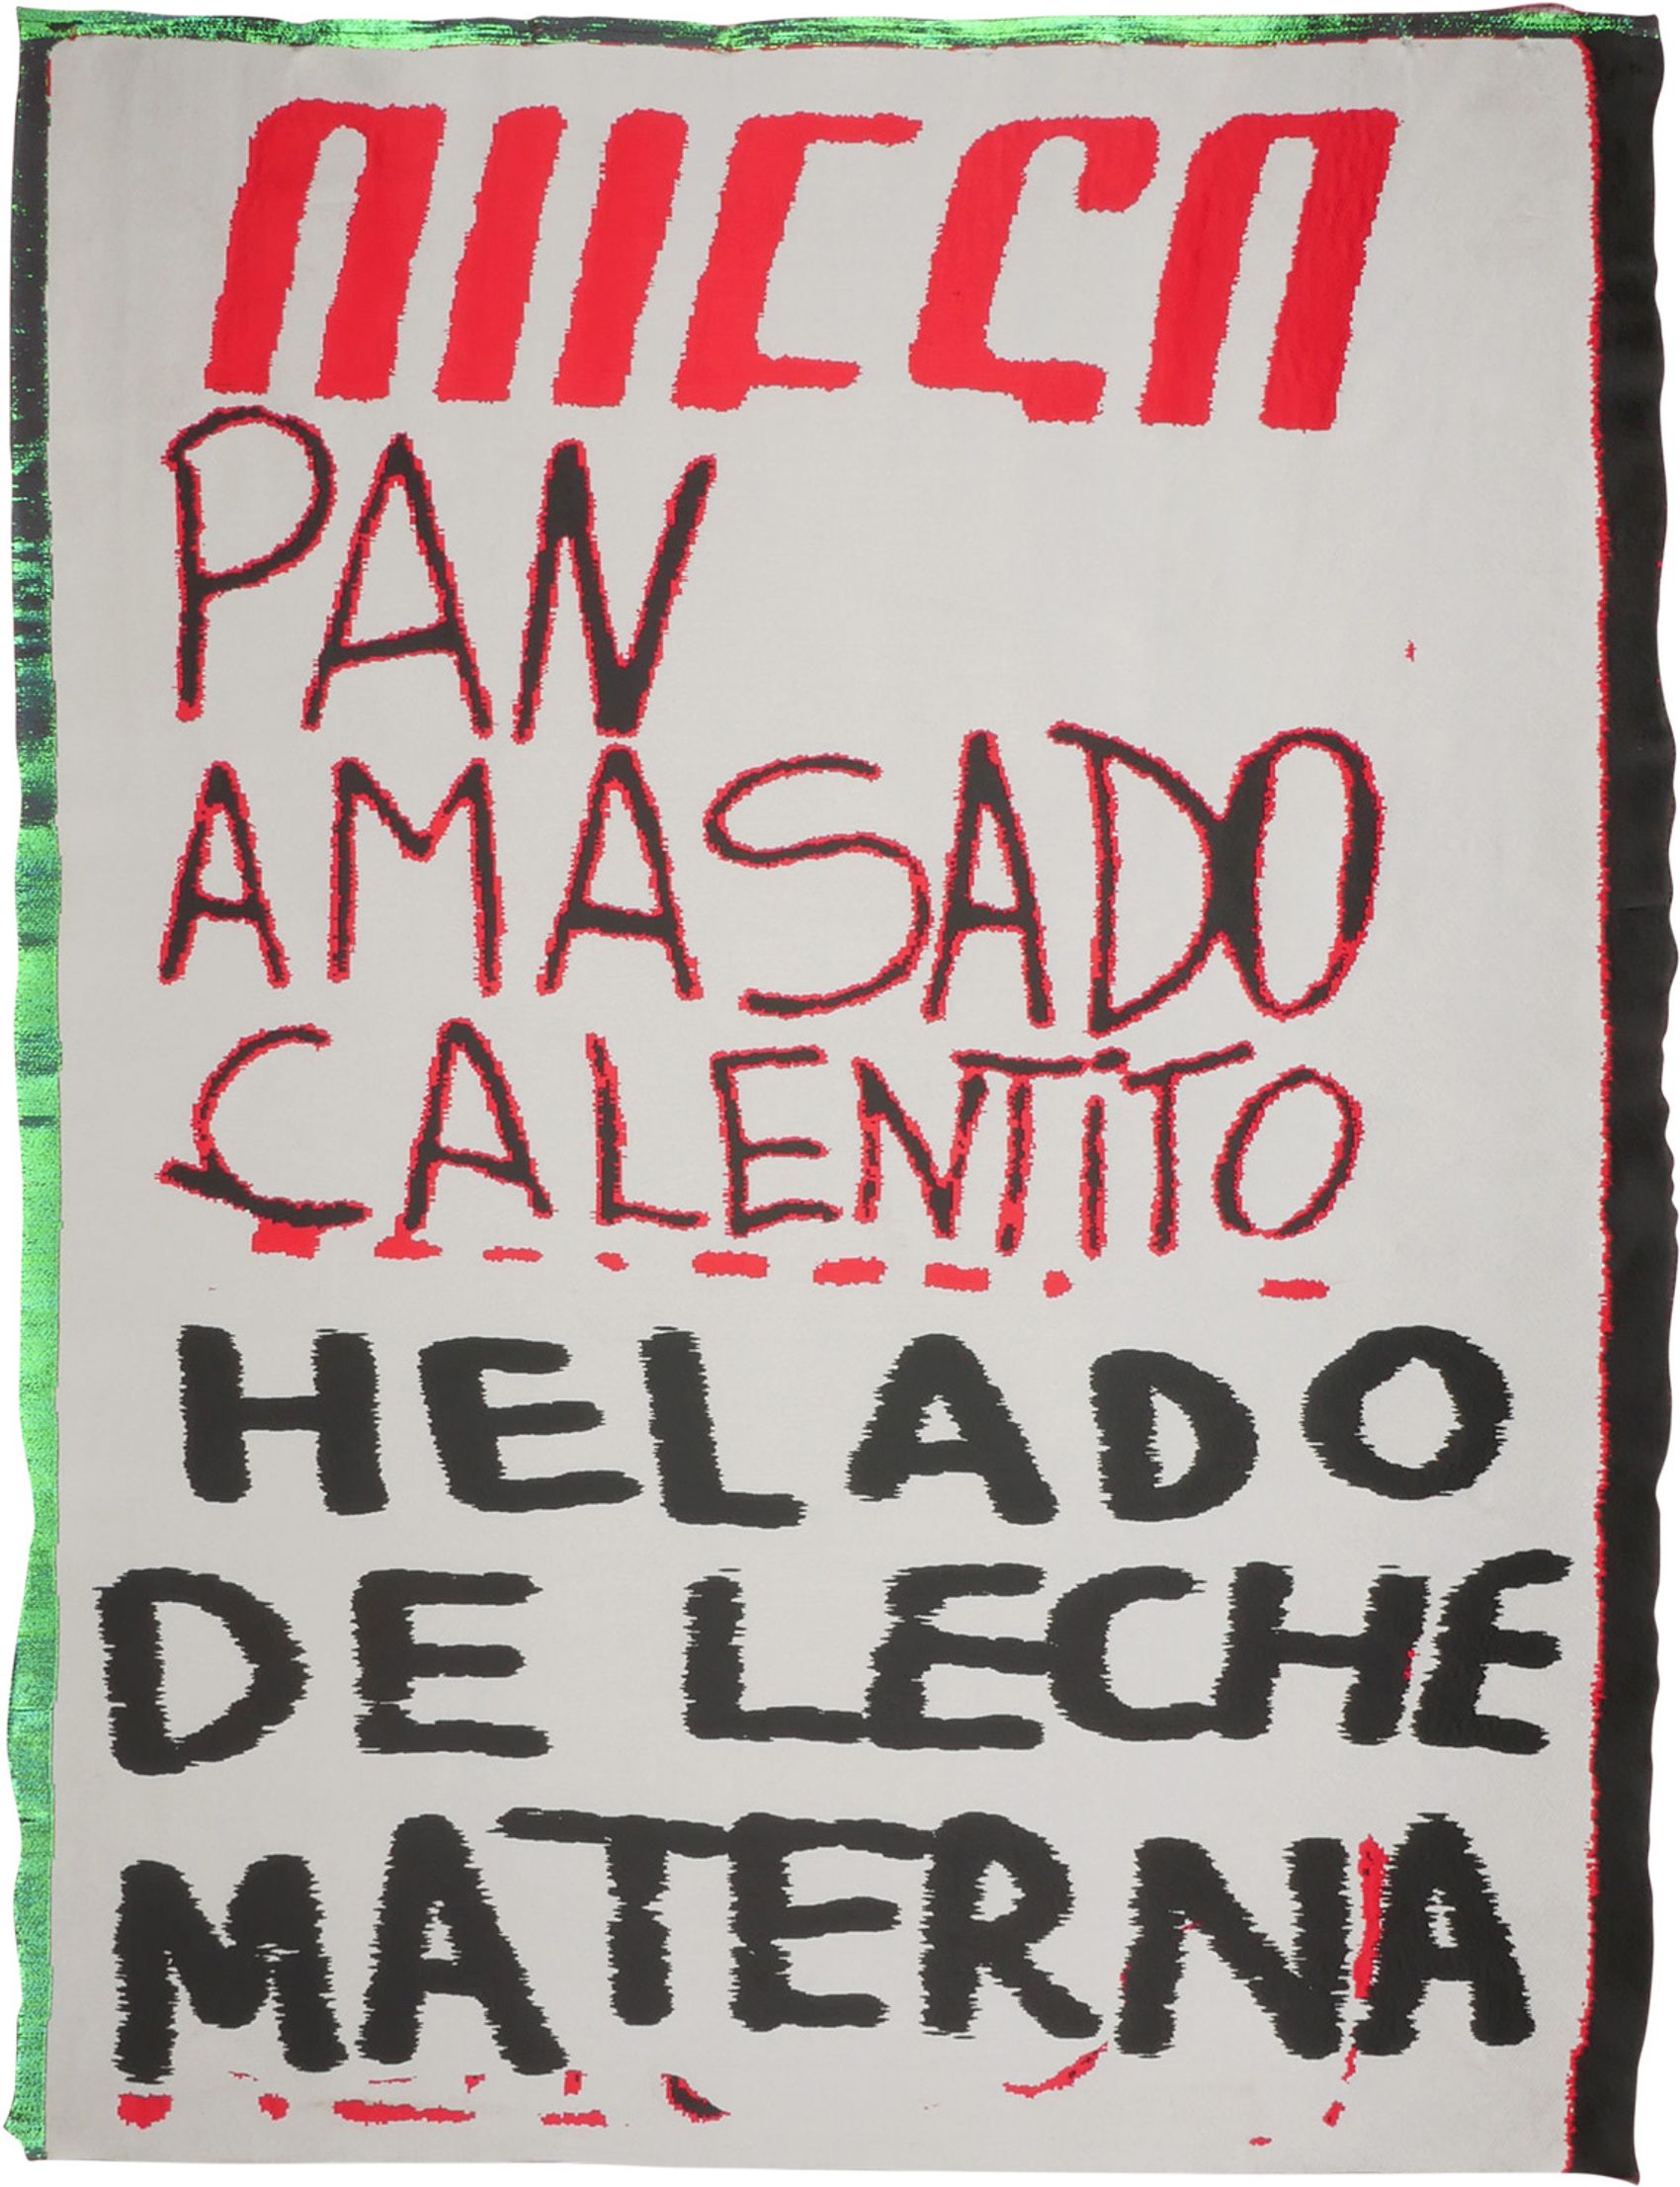 PAN
AMASADO
CALENTITO
HELADO
DE LECHE
MATERNA